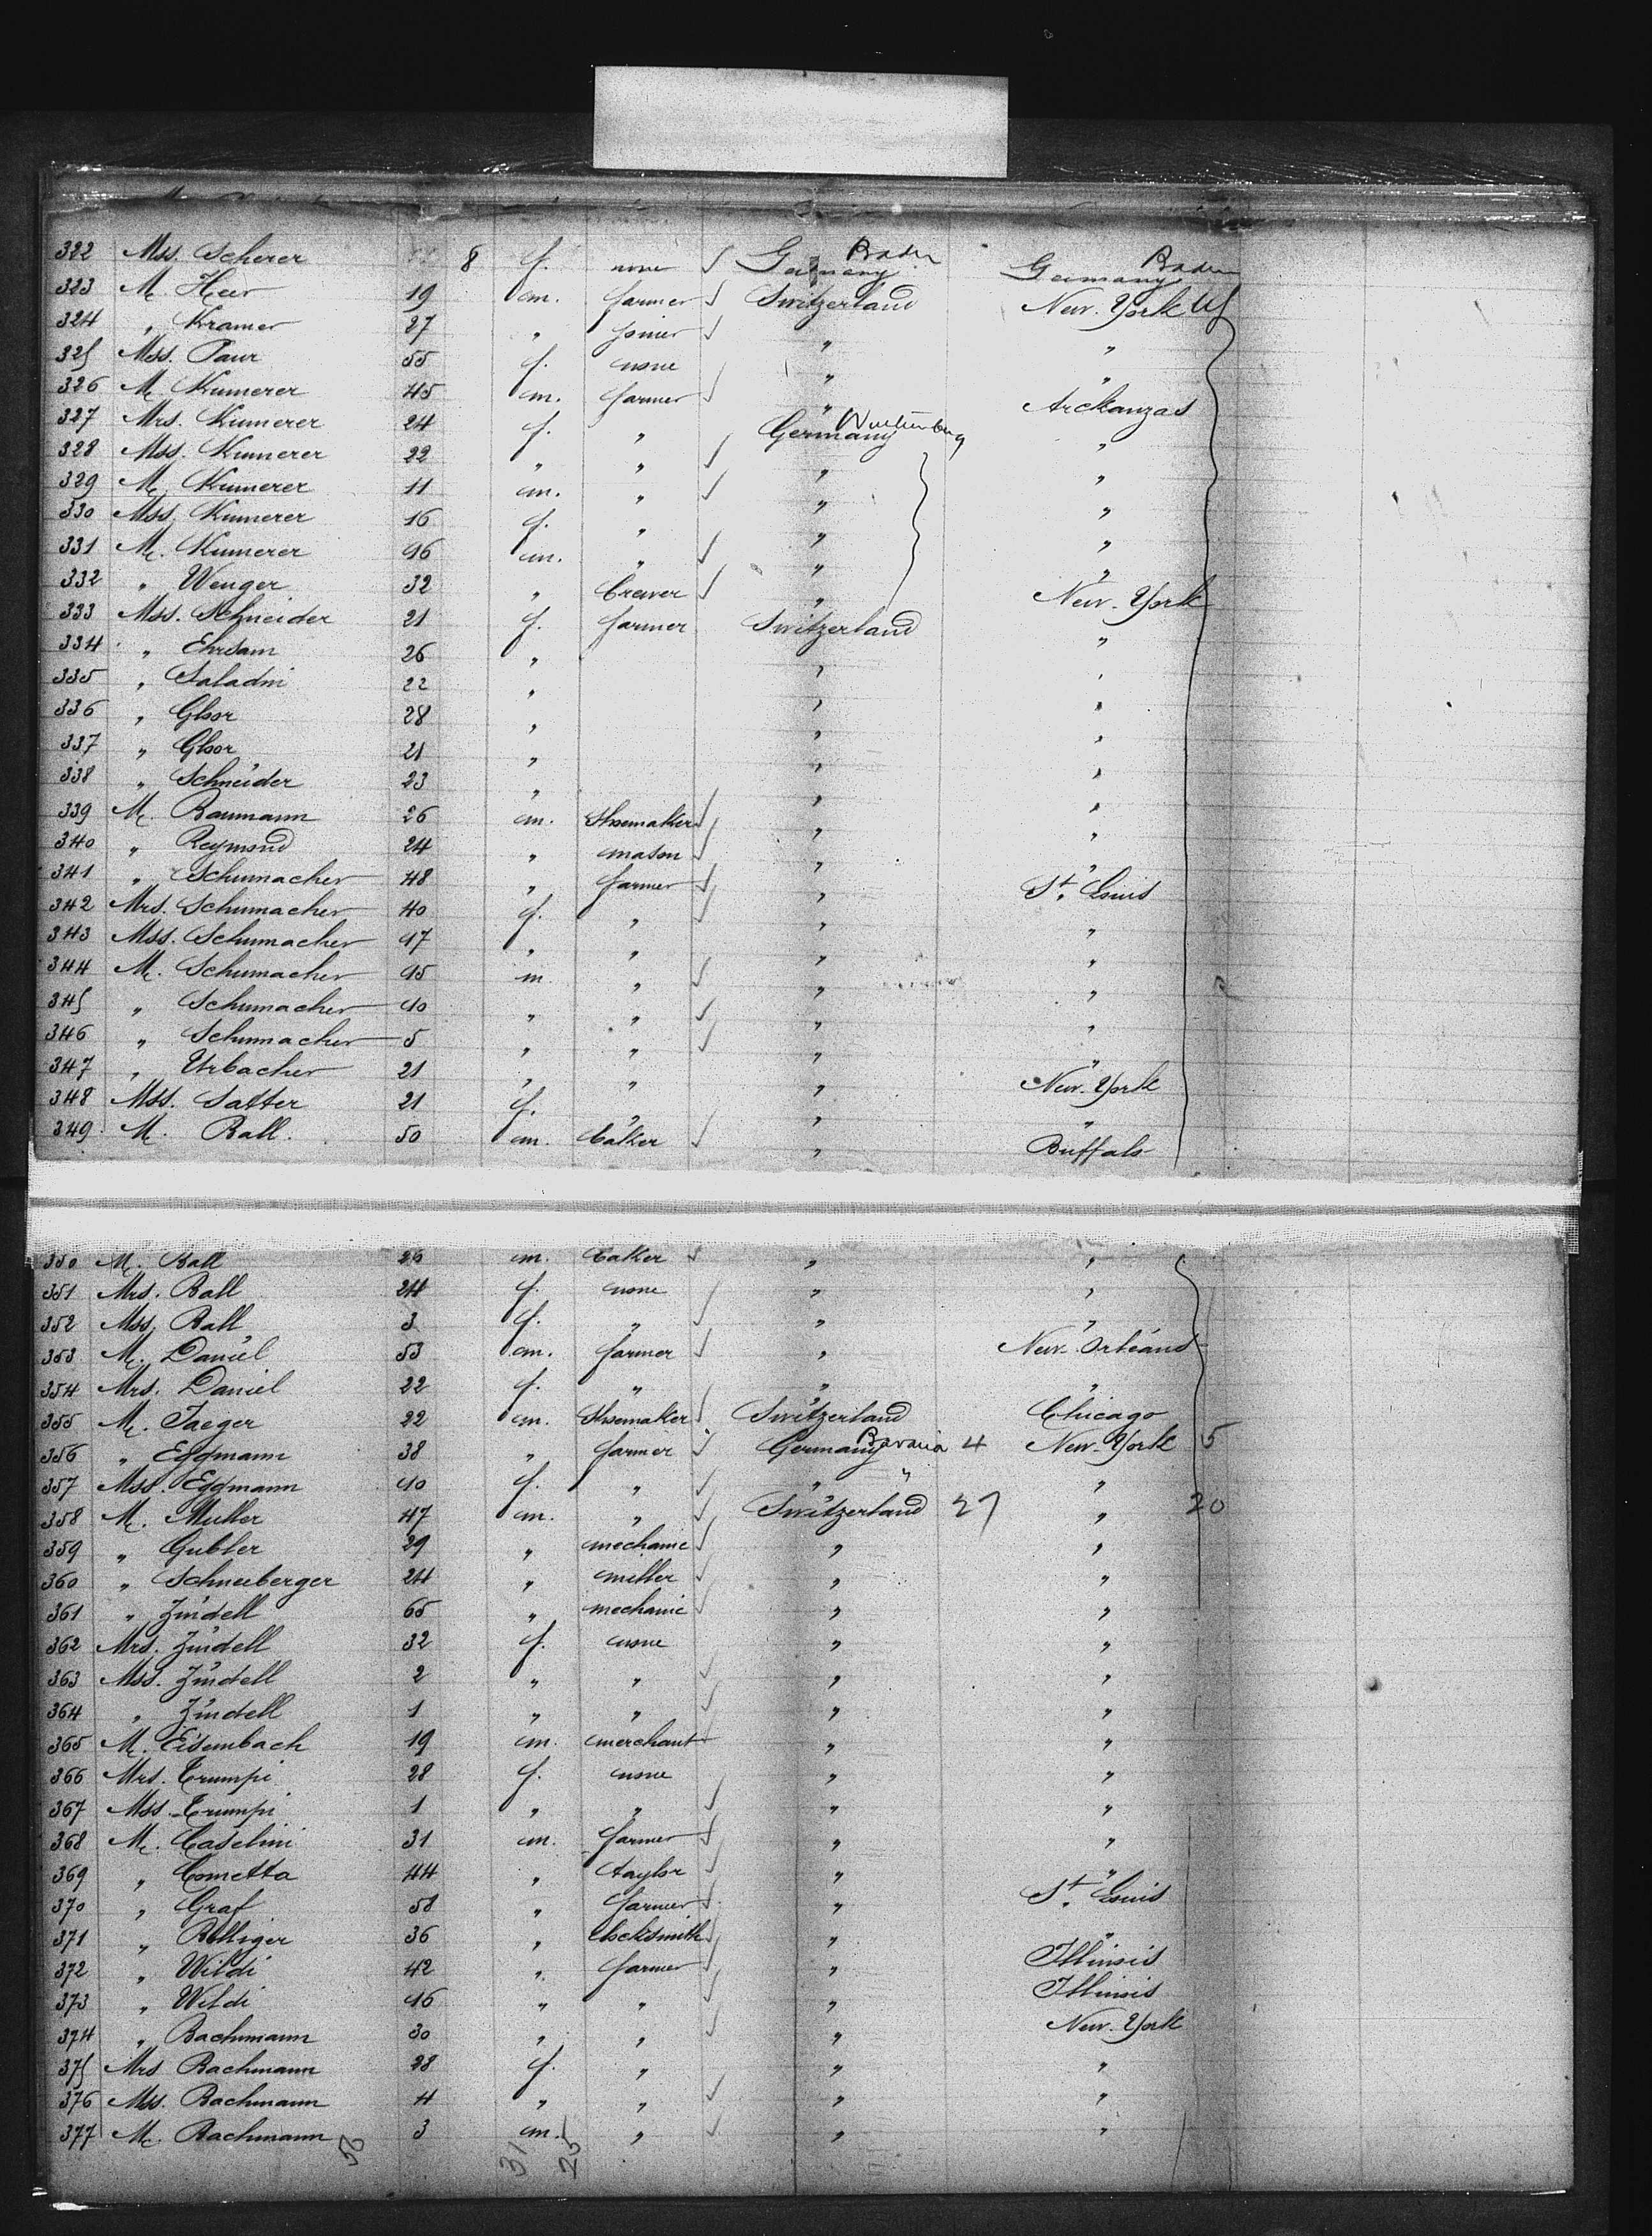 322 Mss. Scherer 8 f. none Germany Baden Germany Baden
323 M. Heer 19 m. farmer Switzerland New-York US
324 " Kramer 27 " joiner " "
325 Mss. Paur 55 f. none " "
326 M. Kumerer 45 m. farmer " Arckanzas
327 Mrs. Kumerer 24 f. " Germany Wurtemburg "
328 Mss. Kumerer 22 " " " "
329 M. Kumerer 11 m. " " "
330 Mss. Kumerer 16 f. " " "
331 M. Kumerer 16 m. " " "
332 " Wenger 32 " Brewer " New-York
333 Mss. Schneider 21 f. farmer Switzerland "
334 " Ehrsam 26 " " "
335 " Saladin 22 " " "
336 " Gloor 28 " " "
337 " Gloor 21 " " "
338 " Schneider 23 " " "
339 M. Baumann 26 m. Shoemaker " "
340 " Reymond 24 " mason " "
341 " Schumacher 48 " farmer " St. Louis
342 Mrs. Schumacher 40 f. " " "
343 Mss. Schumacher 17 " " " "
344 M. Schumacher 15 m " " "
345 " Schumacher 10 " " " "
346 " Schumacher 5 " " " "
347 " Urbacher 21 " " " New-York
348 Mss. Satter 21 f. " "
349 M. Ball. 50 m. baker " Buffalo
350 M. Ball 26 m. baker " "
351 Mrs. Ball 24 f. none " "
352 Mss. Ball 3 f. " " "
353 M. Daniel 53 m. farmer " New-Orléans
354 Mrs. Daniel 22 f. " " "
355 M. Jaeger 22 m. Shoemaker Switzerland Chicago
356 " Eggmann 38 " farmer Germany Bavaria 4 New-York 5
357 Mss. Eggmann 10 f. " " " "
358 M. Muller 47 m. " Switzerland 27 " 20
359 " Gubler 29 " mechanic " "
360 " Schneeberger 24 " miller " "
361 " Zindell 65 " mechanic " "
362 Mrs. Zindell 32 f. none " "
363 Mss. Zindell 2 " " " "
364 " Zindell 1 " " " "
365 M. Eisenbach 19 m. merchant " "
366 Mrs. Trumpi 28 f. none " "
367 Mss. Trumpi 1 " " " "
368 M. Caselini 31 m. farmer " "
369 " Cometta 44 " taylor " "
370 " Graf 58 " farmer " St. Louis
371 " Bolliger 36 " locksmith " "
372 " Wildi 42 " farmer " Illinois
373 " Wildi 16 " " " Illinois
374 " Bachmann 30 " " " New-York
375 Mrs Bachmann 28 f. " " "
376 Mss. Bachmann 4 " " " "
377 M. Bachmann 3 m. " " "
56 31 25